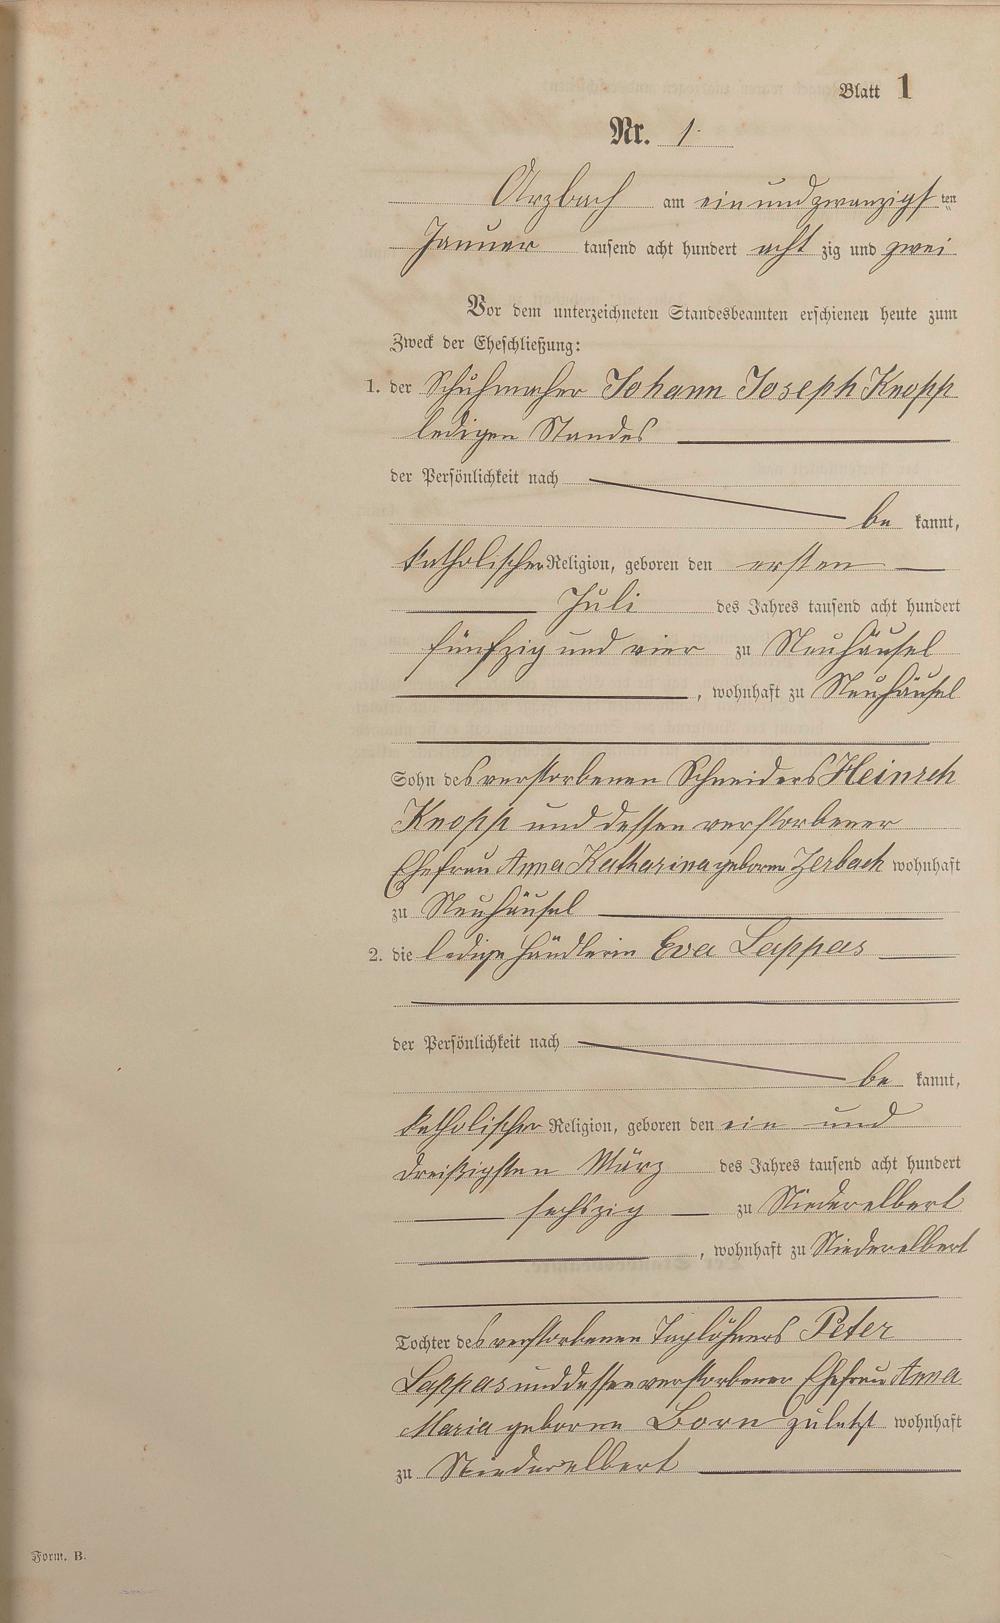 Blatt 1
Nr. 1.
Arzbach am ein und zwanzigsten
Januar tausend acht hundert acht zig und zwei
Vor dem unterzeichneten Standesbeamten erschienen heute zum
Zweck der Eheschließung:
1. der Schuhmacher Johann Joseph Knopp
ledigen Standes
der Persönlichkeit nach
be kannt,
katholischer Religion, geboren den ersten
Juli des Jahres tausend acht hundert
fünfzig und vier zu Neuhäusel
, wohnhaft zu Neuhäusel
Sohn des verstorbenen Schneiders Heinrch
Knopp und dessen verstorbener
Ehefrau Anna Katharina geborne Zerbach wohnhaft
zu Neuhäusel
2. die ledige Händlerin Eva Lappas
der Persönlichkeit nach
be kannt,
katholischer Religion, geboren den ein und
dreißigsten März des Jahres tausend acht hundert
sechszig zu Niederelbert
, wohnhaft zu Niederelbert
Tochter des verstorbenen Taglöhners Peter
Lappas und dessen verstorbener Ehefrau Anna
Maria geborne Born zuletzt wohnhaft
zu Niederelbert
Form. B.